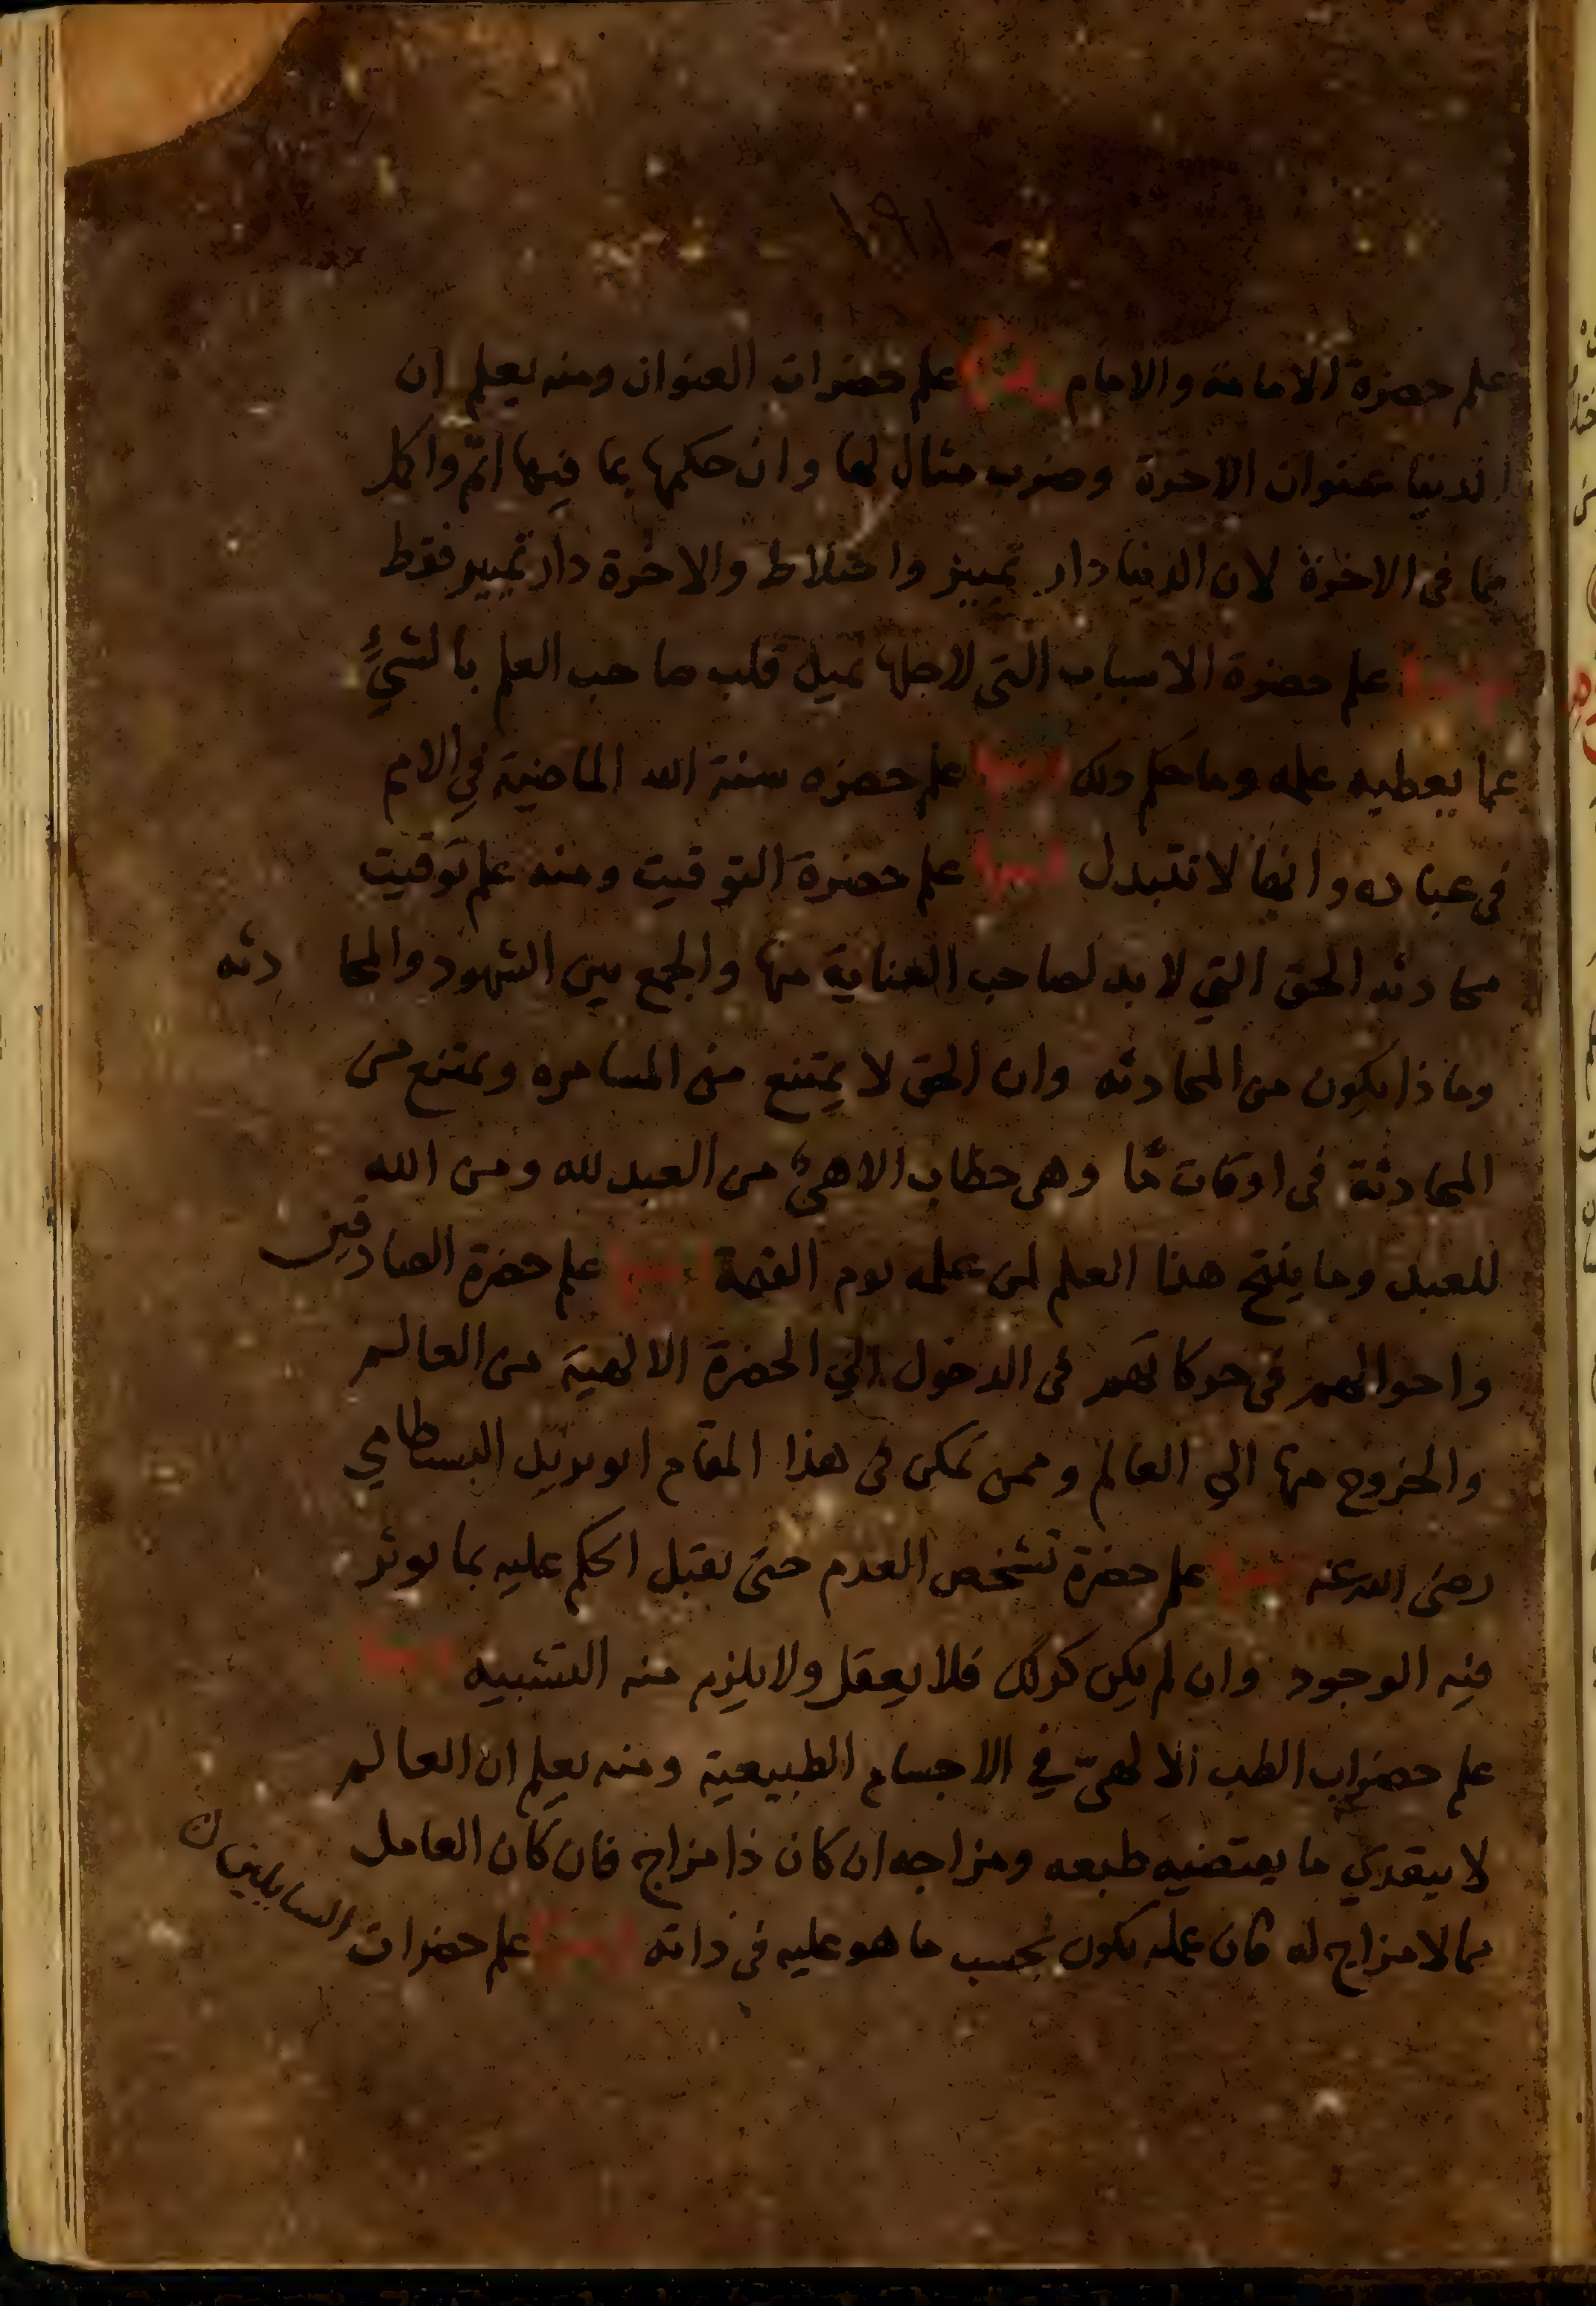 علم حضرة الامامة والامام ومنها علم حضرات العنوان ومنه يعلم ان
الدنيا عنوان الاخرة وضرب مثال لها وان حكمها بما فيها اتمّ واكمل
مما فى الاخرة لان الدنيا دار تمييز واختلاط والاخرة دار تمييز فقط
ومنها علم حضرة الاسباب التى لاجلها يميل قلب صاحب العلم بالشىء
عما يعطيه علمه وما حكم ذلك ومنها علم حضره سنة الله الماضية في الامم
فى عباده وانها لا تتبدل ومنها علم حضرة التوقيت ومنه علم توقيت
محادثه الحق التي لا بد لصاحب العناية منها والجمع بين الشهود والمحا دثه
وماذا يكون من المحادثه وان الحق لا يمتنع من المسامره ويمتنع من
المحادثة فى اوقات ما وهى خطاب الاهىّ من العبد لله ومن الله
للعبد وما ينتج هذا العلم لمن علمه يوم القيمة ومنها علم حضرة الصادقين
واحوالهم فى حركاتهم فى الدخول الي الحضرة الالهية من العالم
والخروج منها الي العالم وممن تمكن فى هذا المقام ابو يزيد البسطامي
رضى الله عنه ومنها علم حضرة تشخص العدم حتى يقبل الحكم عليه بما يوثر
فيه الوجود وان لم يكن كذلك فلا يعقل ولا يلزم منه التشبيه ومنها
علم حضرات الطب الالهىّ في الاجسام الطبيعية ومنه يعلم ان العالم
لا يتعدي ما يقتضيه طبعه ومزاجه ان كان ذا مزاج فان كان العامل
مما لا مزاج له فان عمله يكون بحسب ما هو عليه فى ذاته ومنها علم حضرات السايلين